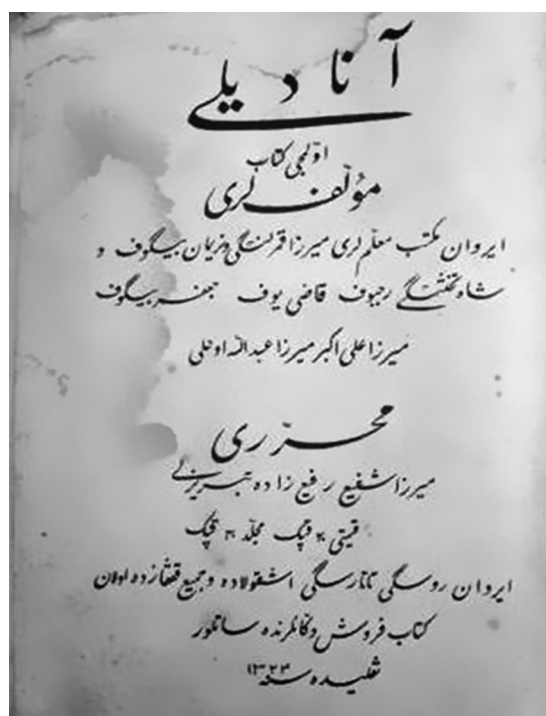 آنا دیلی
اوّلمجی کتاب
مؤلّفلری
ایروان مکتب معلّم لری میرزا قمرلنسگی نریمان بیگوف و
شاه تختنسگی رجبوف قاضی یوف جعفر بیگوف
میرزا علی اکبر میرزا عبدالله اوغلی
محرّری
میرزا شفیع رفیع زاده تبریزلی
قیمتی ۲۰ قپک مجلّد ۳۰ قپک
ایروان روسگی تاتارسگی اشقولاده و جمیع قفقازده اولان
کتاب فروش دکانلرنده ساتلور
تفلیسده سنه ۱۳۲۴